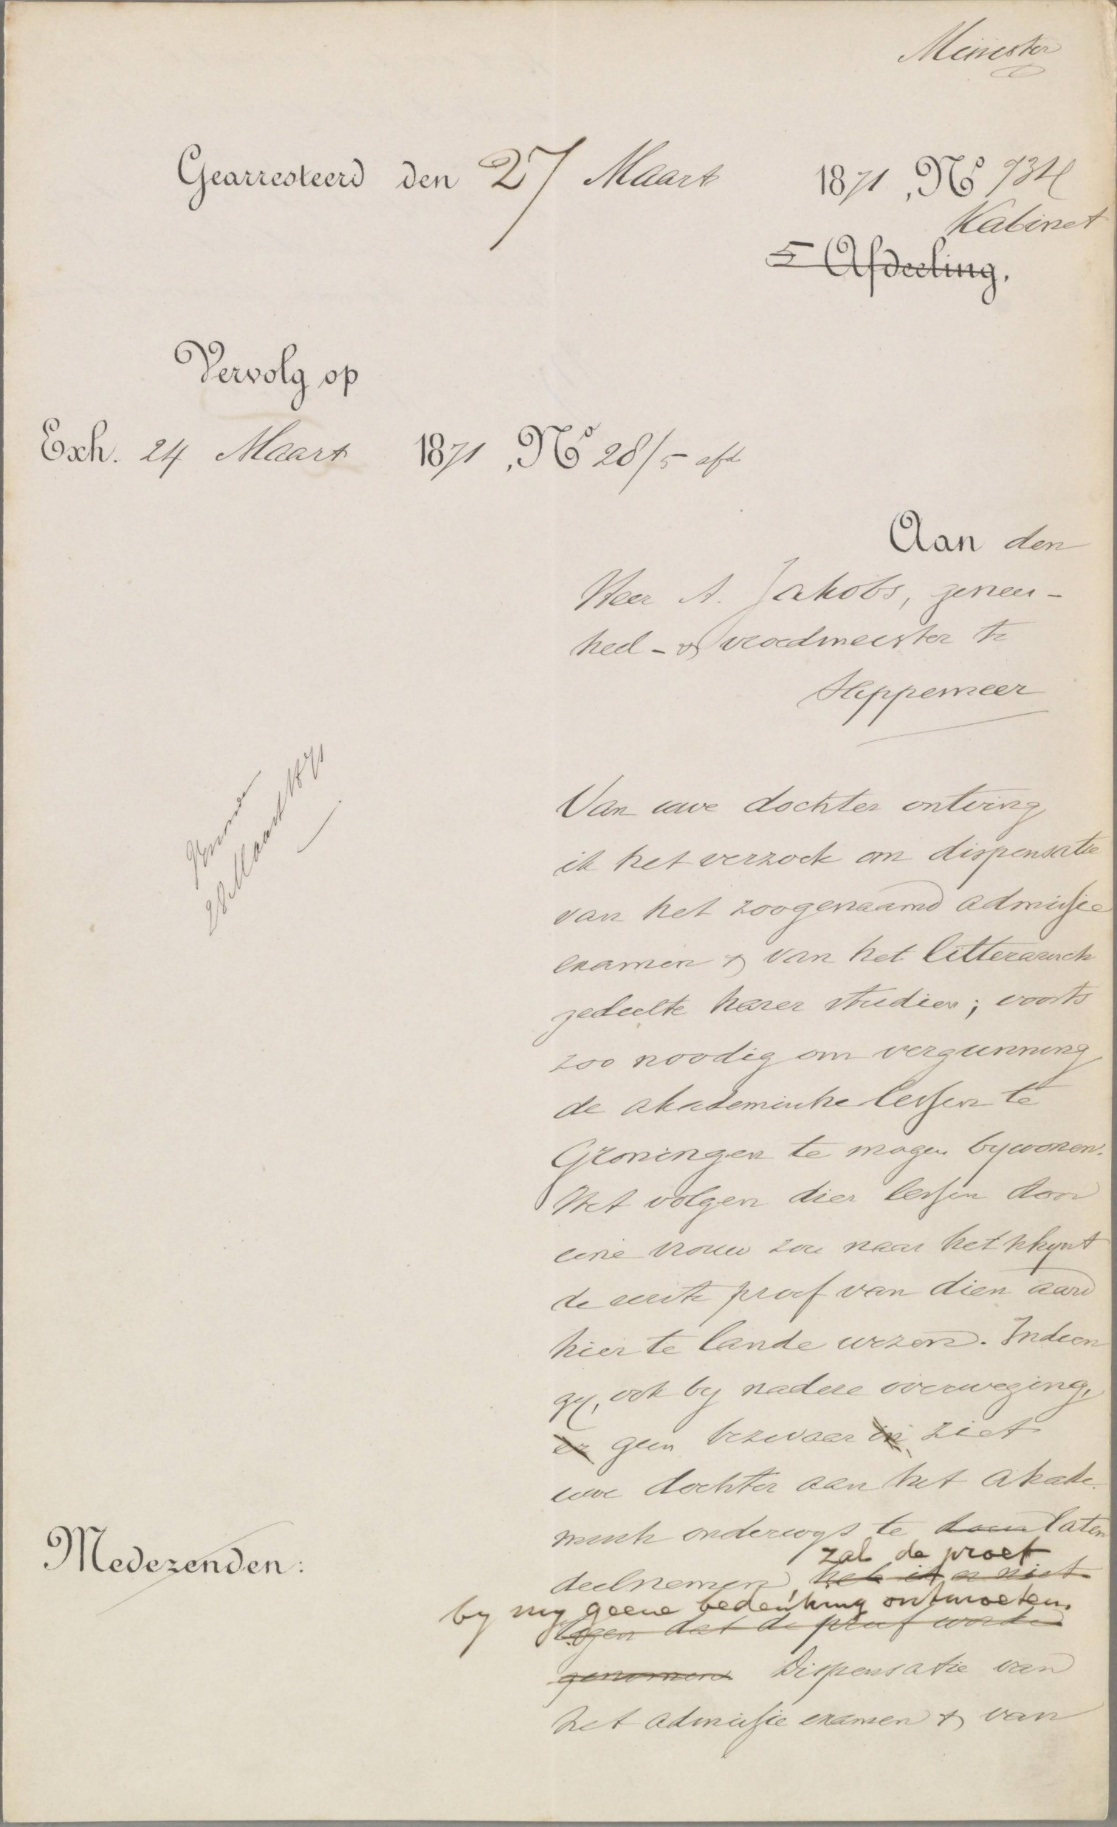 Minister
Gearresteerd den 27 Maart 1871, No 734
Kabinet
5 Afdeeling.
Vervolg op
Exh. 24 Maart 1871, No 28/5 afd
Aan den
Heer A. Jakobs, genees-
heel- & vroedmeester te
Sappemeer
28 Maart 1871
Van uwe dochter ontving
ik het verzoek om dispensatie
van het zoogenaamd admissie
examen & van het litterarisch
gedeelte harer studien; voorts
zoo noodig om vergunning
de akademische lessen te
Groningen te mogen bywonen.
Het volgen dier lessen door
eene vrouw zou naar het schynt
de eerste proef van dien aard
hier te lande wezen. Indien
gy, ook by nadere overweging,
er geen bezwaar in ziet
uwe dochter aan het akade-
misch onderwys te doen laten
zal de proef
deelnemen, heb ik er niet
by my geene bedenking ontmoeten.
tegen dat de proef worde
genomen Dispensatie van
het admissie examen & van
Medezenden: